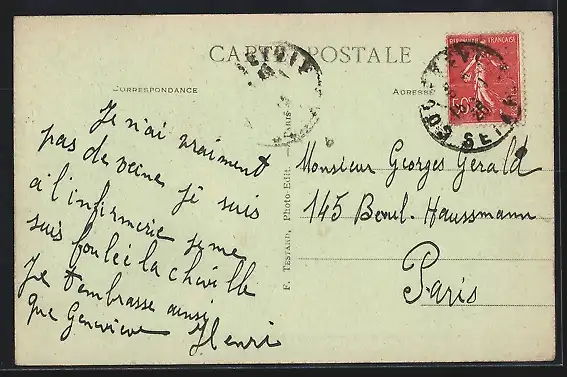 CARTE POSTALE
CORRESPONDANCE
ADRESSE
REPUBLIQUE FRANÇAISE
50c
SEINE
Je n'ai vraiment
pas de veine, je suis
à l'infirmerie je me
suis foulé la cheville
Je t'embrasse ainsi
que Geneviève Henri
F. TESTARD, Photo-Edit. — PARIS
Monsieur Georges Gerald
145 Boul. Haussmann
Paris